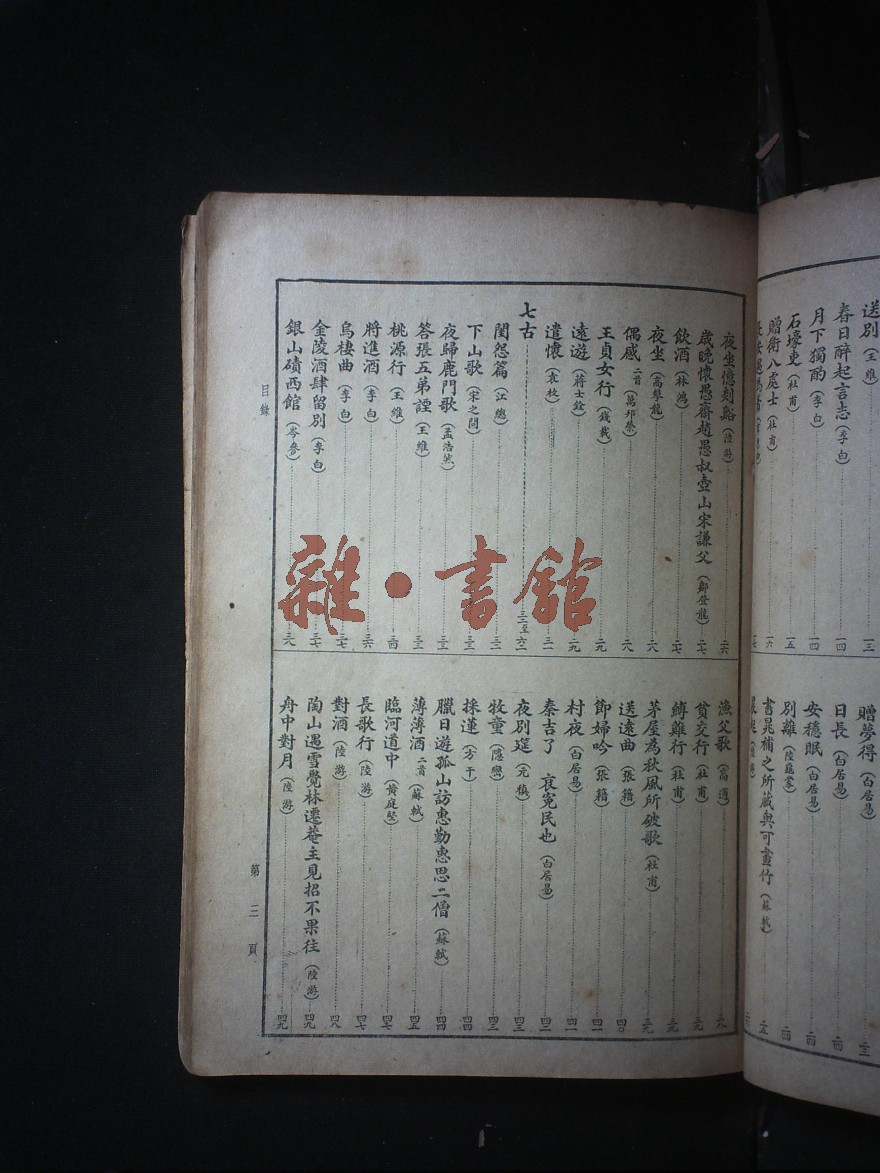 送別（王維）
春日醉起言志（李白）……一四
月下獨酌（李白）……一四
石壕吏（杜甫）……一五
贈衛八處士（杜甫）……一六
贈夢得（白居易）
日長（白居易）……二四
安穩眠（白居易）……二四
別離（陸龜蒙）……二四
書晁補之所藏與可畫竹（蘇軾）……二五
夜坐憶剡谿（陸游）……二六
歲晚懷愚齋趙愚叔壺山宋謙父（鄭登龍）……二七
飲酒（林鴻）……二七
夜坐（高攀龍）……二八
偶感 二首（萬邦榮）……二八
王貞女行（錢載）……二九
遠遊（蔣士銓）……二九
遣懷（袁枚）……三一
七古……三二至六二
閨怨篇（江總）……三二
下山歌（宋之問）……三二
夜歸鹿門歌（孟浩然）……三三
答張五弟諲（王維）……三三
桃源行（王維）……三四
將進酒（李白）……三六
烏棲曲（李白）……三七
金陵酒肆留別（李白）……三七
銀山磧西館（岑參）……三八
漁父歌（高適）……三八
貧交行（杜甫）……三九
縛雞行（杜甫）……三九
茅屋為秋風所破歌（杜甫）……三九
送遠曲（張籍）……四〇
節婦吟（張籍）……四一
村夜（白居易）……四一
秦吉了 哀冤民也（白居易）……四二
夜別筵（元稹）……四三
牧童（隱巒）……四三
採蓮（方干）……四四
臘日遊孤山訪惠勤惠思二僧（蘇軾）……四四
薄薄酒 二首（蘇軾）……四五
臨河道中（黃庭堅）……四七
長歌行（陸游）……四七
對酒（陸游）……四八
陶山遇雪覺林遷菴主見招不果往（陸游）……四九
舟中對月（陸游）……四九
目錄
第三頁
雜·書館